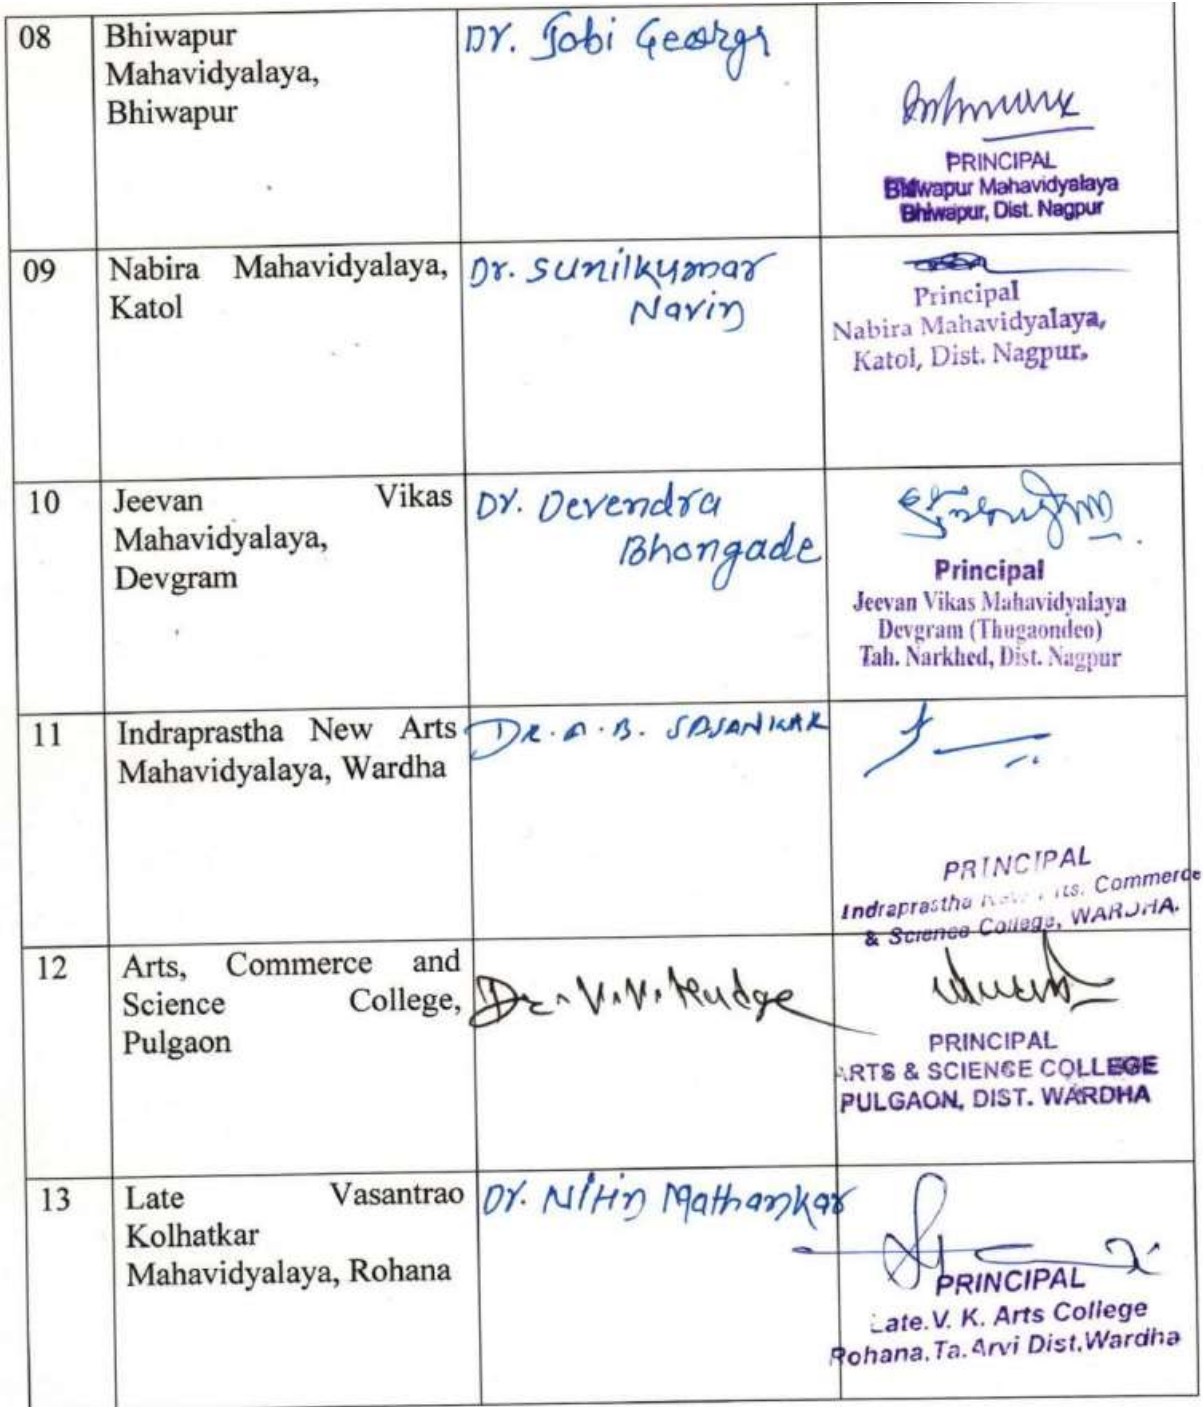 08
Bhiwapur
Mahavidyalaya,
Bhiwapur
Dr. Jobi George
PRINCIPAL
Bhiwapur Mahavidyalaya
Bhiwapur, Dist. Nagpur
09
Nabira Mahavidyalaya,
Katol
Dr. Sunilkumar
Navin
Principal
Nabira Mahavidyalaya,
Katol, Dist. Nagpur.
10
Jeevan Vikas
Mahavidyalaya,
Devgram
Dr. Devendra
Bhongade
Principal
Jeevan Vikas Mahavidyalaya
Devgram (Thugaondeo)
Tah. Narkhed, Dist. Nagpur
11
Indraprastha New Arts
Mahavidyalaya, Wardha
DR. A. B. SASANKAR
PRINCIPAL
Indraprastha New Arts, Commerce
& Science College, WARDHA.
12
Arts, Commerce and
Science College,
Pulgaon
Dr. V. V.
PRINCIPAL
ARTS & SCIENCE COLLEGE
PULGAON, DIST. WARDHA
13
Late Vasantrao
Kolhatkar
Mahavidyalaya, Rohana
Dr. Nitin Mathankar
PRINCIPAL
Late.V. K. Arts College
Rohana.Ta.Arvi Dist.Wardha